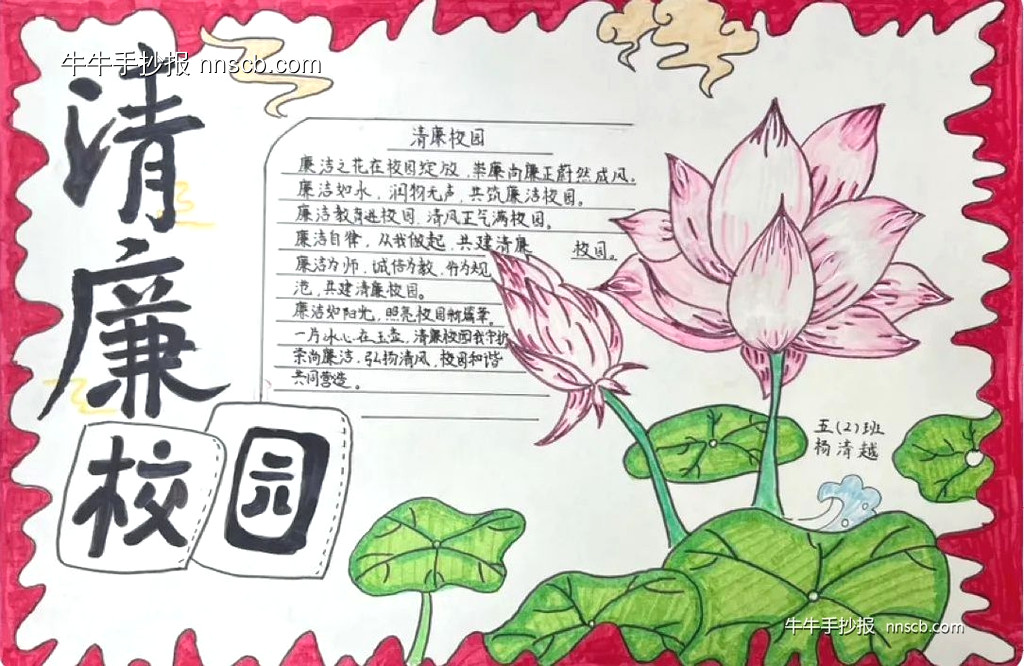 牛牛手抄报 nnscb.com
清
廉
校
园
清廉校园
廉洁之花在校园绽放,崇廉尚廉正蔚然成风。
廉洁如水,润物无声,共筑廉洁校园。
廉洁教育进校园,清风正气满校园。
廉洁自律,从我做起,共建清廉 校园。
廉洁为师,诚信为教,作为规
范,共建清廉校园。
廉洁如阳光,照亮校园新篇章。
一片冰心在玉壶,清廉校园我守护
崇尚廉洁,弘扬清风,校园和谐
共同营造。
五(2)班
杨清越
牛牛手抄报 nnscb.com